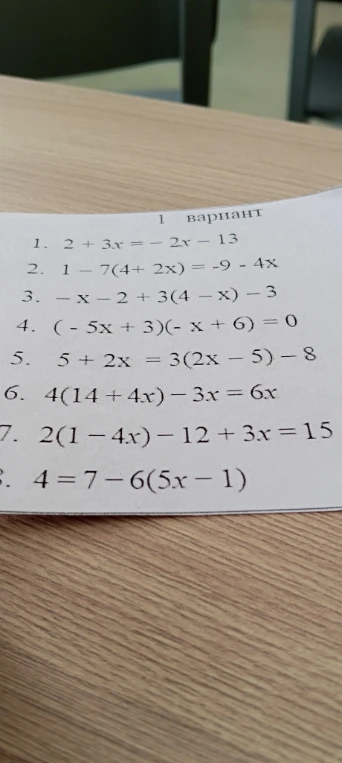 1 вариант
1. 2 + 3x = – 2x – 13
2. 1 – 7(4+ 2x) = -9 - 4x
3. – x – 2 + 3(4 – x) – 3
4. ( - 5x + 3)(- x + 6) = 0
5. 5 + 2x = 3(2x – 5) – 8
6. 4(14 + 4x) – 3x = 6x
7. 2(1 – 4x) – 12 + 3x = 15
8. 4 = 7 – 6(5x – 1)